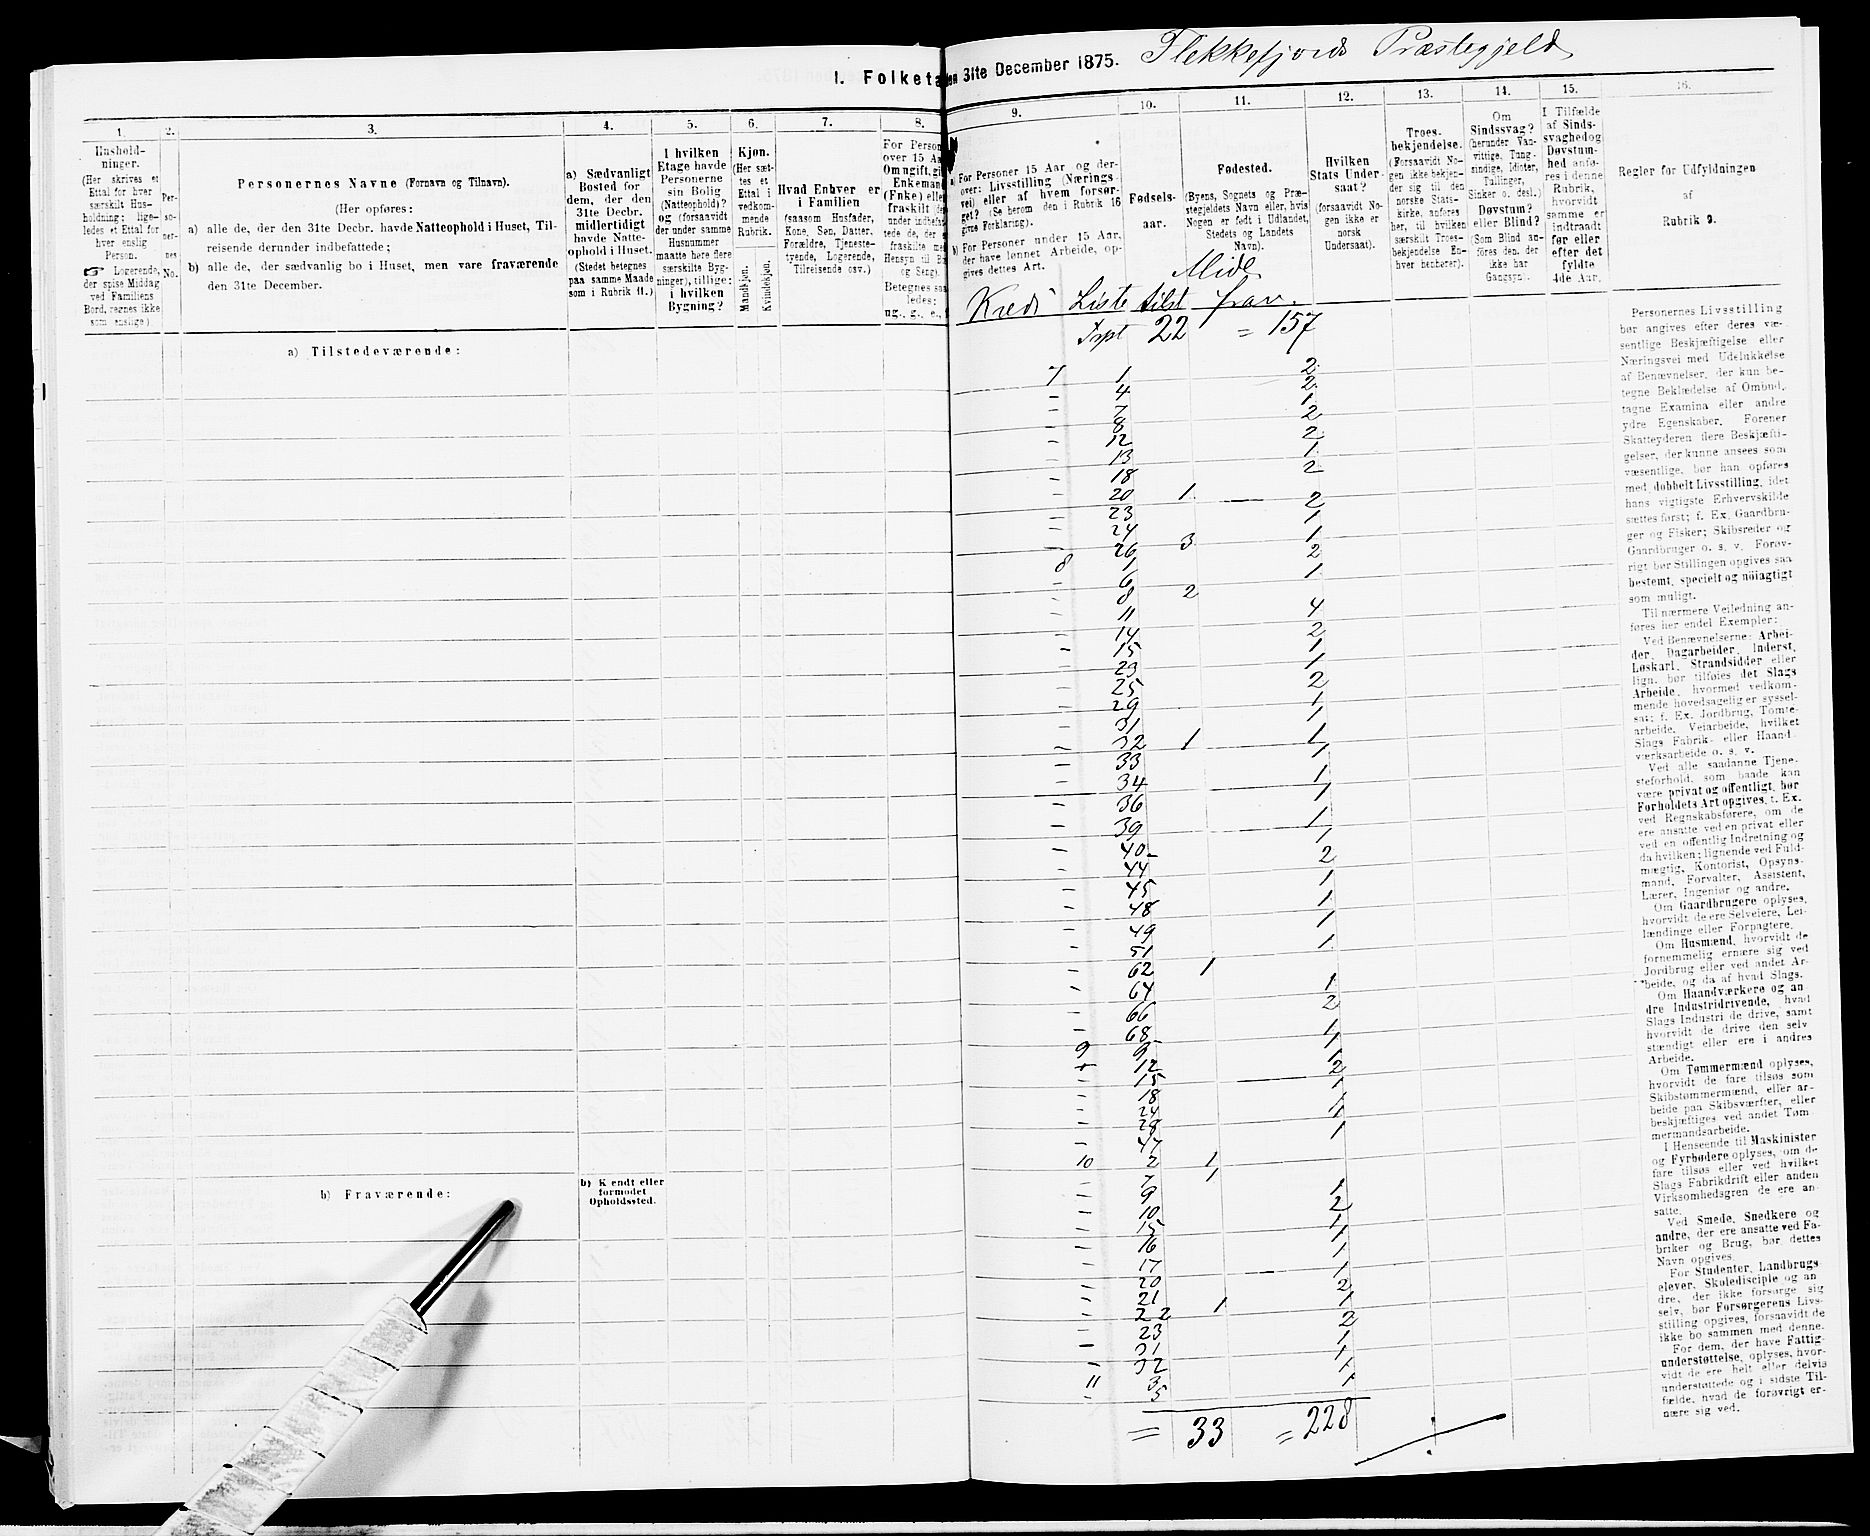 1. Folketæ
en 31te December 1875.
Flekkefjords Præstegjeld
1.
2.
3.
4.
5.
6.
7.
8.
9.
10.
11.
12.
13.
14.
15.
16.
Hushold-
ninger.
(Her skrives et
Ettal for hver
særskilt Hus-
holdning; lige-
ledes et Ettal for
hver enslig
Person.
☞ Logerende,
der spise Middag
ved Familiens
Bord, regnes ikke
som enslige)
Per-
so-
ner-
nes
No.
Personernes Navne (Fornavn og Tilnavn).
(Her opføres:
a) alle de, der den 31te Decbr. havde Natteophold i Huset, Til-
reisende derunder indbefattede;
b) alle de, der sædvanlig bo i Huset, men vare fraværende
den 31te December.
a) Sædvanligt
Bosted for
dem, der den
31te Decbr.
midlertidigt
havde Natte-
ophold i Huset.
(Stedet betegnes
paa samme Maade
som i Rubrik 11.)
I hvilken
Etage havde
Personerne
sin Bolig
(Natteophold)?
og (forsaavidt
der under samme
Husnummer
maatte høre flere
særskilte Byg-
ninger), tillige:
i hvilken
Bygning?
Kjøn.
(Her sæt-
tes et
Ettal i
vedkom-
mende
Rubrik.
Mandkjøn.
Kvindekjøn.
Hvad Enhver er
i Familien
(saasom Husfader,
Kone, Søn, Datter,
Forældre, Tjeneste-
tyende, Logerende,
Tilreisende osv.)
For Person
over 15 Aa
Om ugift, gi
Enkeman
(Enke) eller
fraskilt (
under indbefat-
tede de, der e
fraskilte me
Hensyn til B
og Seng).
Betegnes saa
ledes:
ug., g., e.,
For Personer 15 Aar og der-
over: Livsstilling (Nærings-
vei) eller af hvem forsør-
get? (Se herom den i Rubrik 16
givne Forklaring).
b) For Personer under 15 Aar,
der have lønnet Arbeide, op-
gives dettes Art.
Fødsels-
aar.
Fødested.
(Byens, Sognets og Præ-
stegjeldets Navn eller, hvis
Nogen er født i Udlandet,
Stedets og Landets
Navn).
Hvilken
Stats Under-
saat?
(forsaavidt No-
gen ikke er
norsk
Undersaat).
Troes-
bekjendelse.
(Forsaavidt No-
gen ikke bekjen-
der sig til den
norske Stats-
kirke, anføres
her, til hvilken
særskilt Troes-
bekjendelse En-
hver henhører).
Om
Sindssvag?
(herunder Van-
vittige, Tung-
sindige, Idioter,
Tullinger,
Sinker o. desl.)
Døvstum?
eller Blind?
(Som Blind an-
føres den, der
ikke har
Gangsyn).
I Tilfælde
af Sinds-
svaghed og
Døvstum-
hed anfø-
res i denne
Rubrik,
hvorvidt
samme er
indtraadt
før eller
efter det
fyldte
4de Aar.
Regler for Udfyldningen
af
Rubrik 9.
Midl
Kreds Liste tilst frav.
Tspt 22 = 157
a) Tilstedeværende:
7 1 2
" 4 2
" 7 1
" 8 2
" 12 2
" 13 1
" 18 2
" 20 1
" 23 2
" 24 1
" 26 3 1
8 1 2
" 6 1
" 8 2
" 11 4
" 14 2
" 15 1
" 23 1
" 25 2
" 29 1
" 31 1
" 32 1 1
" 33 1
" 34 1
" 36 1
" 39 1
" 40 1
" 44 2
" 45 1
" 48 1
" 49 1
" 51 1
" 62 1
" 64 1
" 66 2
" 68
9 9 1
" 12 1
" 15 2
" 18 1
" 24 1
" 28 1
" 47 1
10 2 1
" 7 1
" 9 1
" 10 2
" 15 1
" 16 1
" 17
" 20 1
" 21 2
" 22 1 1
" 23 2
" 31 1
" 32 1
11 3 1
" 5 1
= 33 = 228
b) Fraværende:
b) Kjendt eller
formodet
Opholdssted.
Personernes Livsstilling
bør angives efter deres væ-
sentlige Beskjæftigelse eller
Næringsvei med Udelukkelse
af Benævnelser, der kun be-
tegne Beklædelse af Ombud,
tagne Examina eller andre
ydre Egenskaber. Forener
Skatteyderen flere Beskjæfti-
gelser, der kunne ansees som
væsentlige, bør han opføres
med dobbelt Livsstilling, idet
hans vigtigste Erhvervskilde
sættes først; f. Ex. Gaardbru-
ger og Fisker; Skibsreder og
Gaardbruger o. s. v. Forøv-
rigt bør Stillingen opgives saa
bestemt, specielt og nöiagtigt
som muligt.
Til nærmere Veiledning an-
føres her endel Exempler:
Ved Benævnelserne: Arbei-
der, Dagarbeider, Inderst,
Løskarl, Strandsidder eller
lign. bør tilføies det Slags
Arbeide, hvormed vedkom-
mende hovedsagelig er syssel-
sat; f. Ex. Jordbrug, Tomte-
arbeide, Veiarbeide, hvilket
Slags Fabrik- eller Haand-
værksarbeide o. s. v.
Ved alle saadanne Tjene-
steforhold, som baade kan
være privat og offentligt, bør
Forholdets Art opgives, t. Ex.
ved Regnskabsførere, om de
ere ansatte ved en privat eller
ved en offentlig Indretning og
da hvilken; lignende ved Fuld-
mægtig, Kontorist, Opsyns-
mand, Forvalter, Assistent,
Lærer, Ingeniør og andre.
Om Gaardbrugere oplyses,
hvorvidt de ere Selveiere, Lei-
lændinge eller Forpagtere.
Om Husmænd, hvorvidt de
fornemmelig ernære sig ved
Jordbrug eller ved andet Ar-
beide, og da af hvad Slags.
Om Haandværkere og an-
dre Industridrivende, hvad
Slags Industri de drive, samt
hvorvidt de drive den selv-
stændigt eller ere i andres
Arbeide.
Om Tømmermænd oplyses,
hvorvidt de fare tilsøs som
Skibstømmermænd, eller ar-
beide paa Skibsværfter, eller
beskjæftiges ved andet Tøm-
mermandsarbeide.
I Henseende til Maskinister
og Fyrbødere oplyses, om de
fare tilsøs eller ved hvilket
Slags Fabrikdrift eller anden
Virksomhedsgren de ere an-
satte.
Ved Smede, Snedkere og
andre, der ere ansatte ved Fa-
briker og Brug, bør dettes
Navn opgives.
For Studenter, Landbrugs-
elever, Skoledisciple og an-
dre, der ikke forsørge sig
selv, bør Forsørgerens Livs-
stilling opgives, forsaavidt de
ikke bo sammen med denne.
For dem, der have Fattig-
understøttelse, oplyses, hvor-
vidt de ere helt eller delvis
understøttede og i sidste Til-
fælde, hvad de forøvrigt er-
nære sig ved.